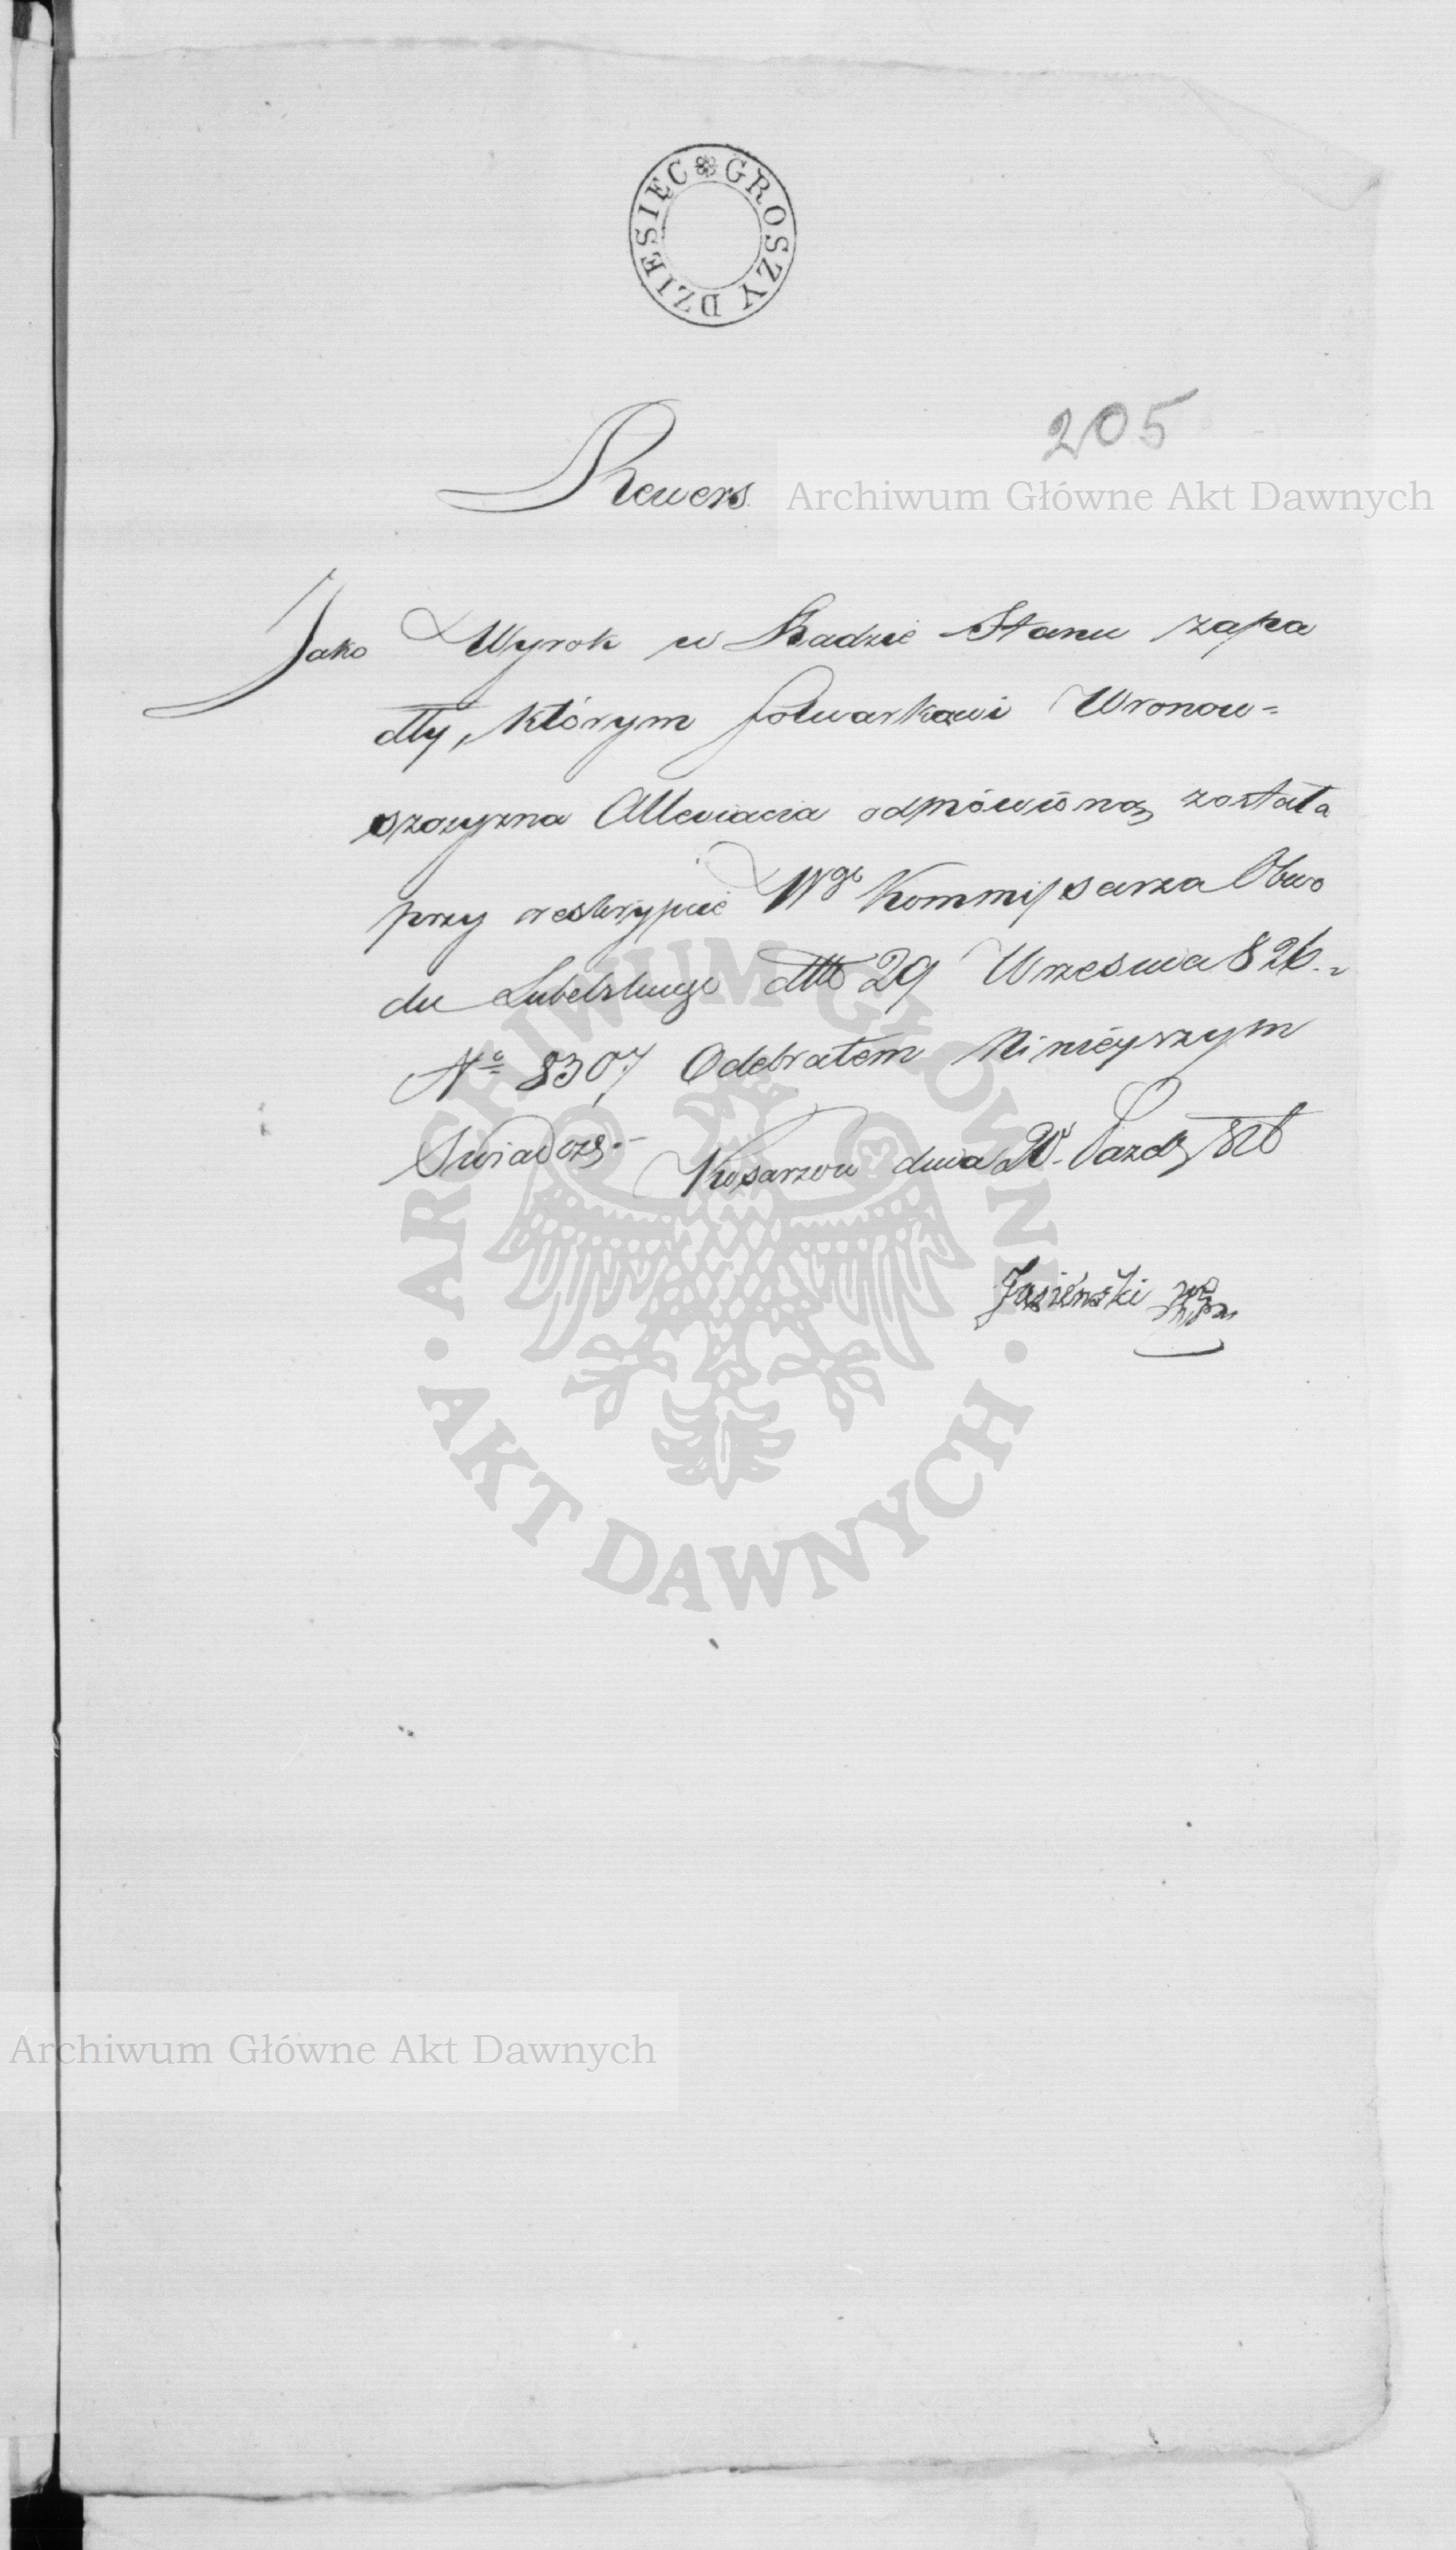 GROSZY DZIESIĘC
205
Rewers
Archiwum Główne Akt Dawnych
Jako Wyrok w Radzie Stanu zapa
dły, którym folwarkowi Wronow=
szczyzna Alleviacia odmówioną została
przy reskrypcie Wgo Kommissarza Obwo
du Lubelskiego dtto 29 Wrzesnia 826.
No 8307 Odebrałem Ninieyszym
Swiadczę.–
Kosarzew dnia 20. Pazdz 826
Jasieński mp
ARCHIWUM GŁÓWNE
AKT DAWNYCH
Archiwum Główne Akt Dawnych